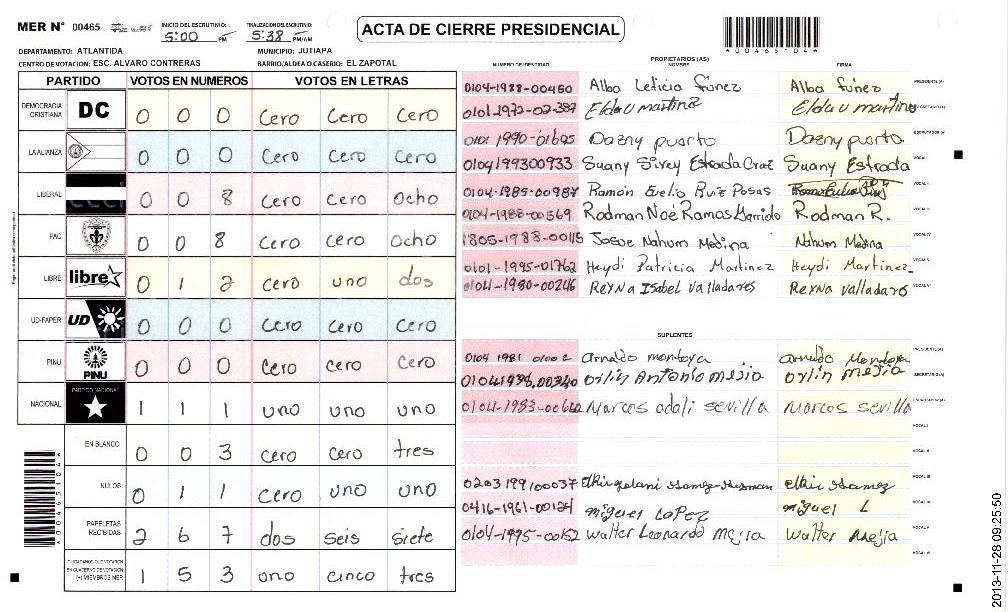 MER N° 00465
INICIO DEL ESCRUTINIO: 5:00 PM
FINALIZACION DEL ESCRUTINIO: 5:38 PM/AM
ACTA DE CIERRE PRESIDENCIAL
*00465104*
DEPARTAMENTO: ATLANTIDA
MUNICIPIO: JUTIAPA
CENTRO DE VOTACION: ESC. ALVARO CONTRERAS
BARRIO/ALDEA O CASERIO: EL ZAPOTAL
PARTIDO VOTOS EN NUMEROS VOTOS EN LETRAS
DEMOCRACIA CRISTIANA DC 0 0 0 cero cero cero
LA ALIANZA 0 0 0 cero cero cero
LIBERAL 0 0 8 cero cero ocho
PAC 0 0 8 cero cero ocho
LIBRE libre 0 1 2 cero uno dos
UD-FAPER UD 0 0 0 cero cero cero
PINU PINU 0 0 0 cero cero cero
NACIONAL PARTIDO NACIONAL 1 1 1 uno uno uno
EN BLANCO 0 0 3 cero cero tres
NULOS 0 1 1 cero uno uno
PAPELETAS RECIBIDAS 2 6 7 dos seis siete
CIUDADANOS QUE VOTARON EN CUADERNO DE VOTACION (+) MIEMBROS MER 1 5 3 uno cinco tres
*00465104*
PROPIETARIOS (AS)
NUMERO DE IDENTIDAD NOMBRE FIRMA
0104-1988-00460 Alba Leticia Fúnez Alba Fúnez PRESIDENTE (A)
0101-1972-02-387 Elda u martinez Elda u martinez SECRETARIO (A)
0101 1990-01645 Dazny puerto Dazny puerto ESCRUTADOR (A)
0104199300933 Suany Sirey Estrada Cruz Suany Estrada VOCAL I
0104-1985-00987 Ramón Evelio Ruiz Posas VOCAL II
0104-1988-00569 Rodman Noé Ramos Garrido Rodman R. VOCAL III
1805-1988-00115 Josue Nahum Medina Nahum Medina VOCAL IV
0101-1995-01762 Heydi Patricia Martinez Heydi Martinez VOCAL V
0104-1980-00246 Reyna Isabel valladares Reyna valladares VOCAL VI
SUPLENTES
0104 1981 01002 arnaldo montoya arnaldo Montoya PRESIDENTE (A)
orlin Antonio mejia orlin mejia SECRETARIO (A)
Marcos adali sevilla Marcos sevilla ESCRUTADOR (A)
VOCAL I
VOCAL II
0203199100037 VOCAL III
0416-1961-00124 miguel Lopez miguel L VOCAL IV
0104-1995-00152 Walter Leonardo Mejia Walter Mejia VOCAL V
VOCAL VI
2013-11-28 09:25:50